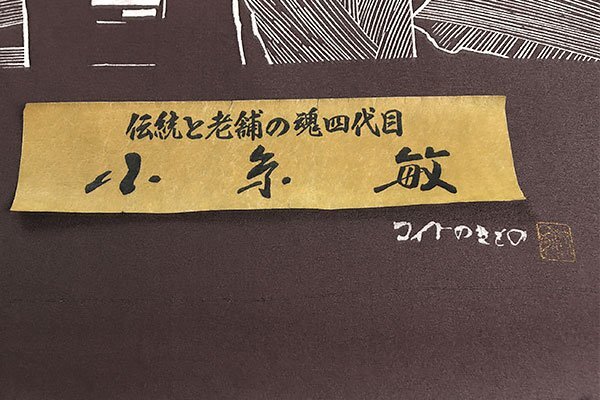 伝統と老舗の魂四代目
小糸 敏
コイトのきもの